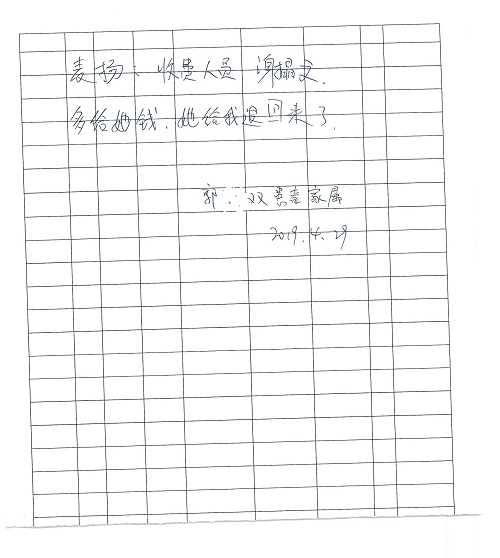 麦扬：收费人员 谢娟文.
多给她钱.她给我退回来了.
郭 双 患者家属
2019.4.29